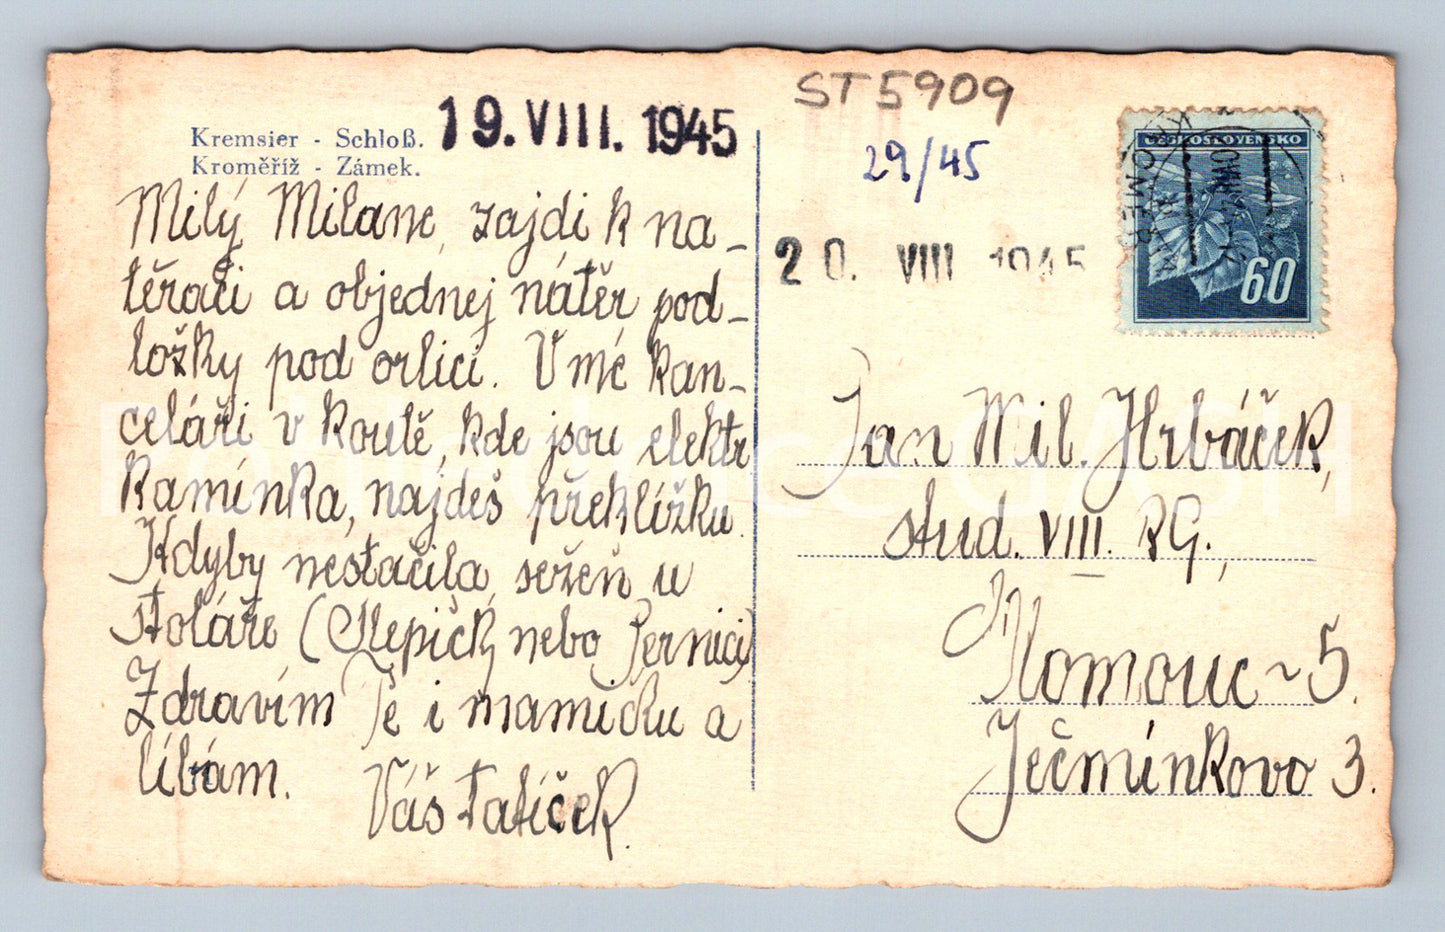 Kremsier - Schloß.
Kroměříž - Zámek.
19. VIII. 1945
Milý Milane, zajdi k na-
těrači a objednej nátěr pod-
ložky pod orlici. V mé kan-
celáři v koutě, kde jsou elektr
kamínka, najdeš překližku.
Kdyby nestačila, sežeň u
stoláře (Slepičky nebo Pernici)
Zdravím Tě i mamičku a
líbám.
Váš Tatíček.
ST 5909
29/45
20. VIII 1945
ČESKOSLOVENSKO
60
Jan Mil. Hrbáček,
stud. VIII. RG.,
Olomouc ~ 5.
Ječmínkova 3.